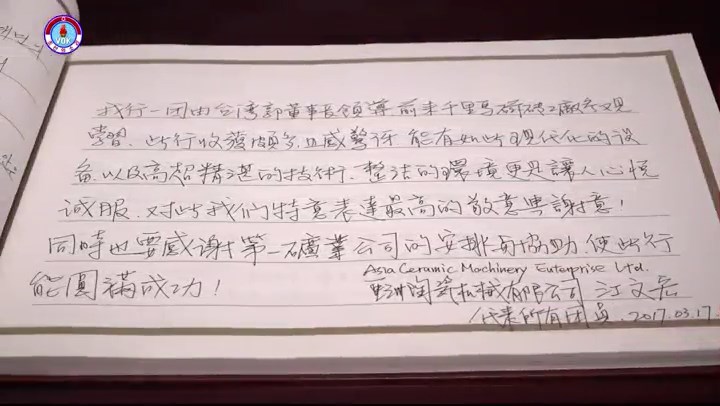 VOK
我行一团由台湾郭董事長領導前来千里马磚廠参观
學習. 此行收獲頗多. 且感驚訝 能有如此现代化的设
备以及高超精湛的技術. 整洁的環境更是讓人心悦
诚服. 对此我们特意表達最高的敬意與謝意!
同時也要感謝第一礦業公司的安排與協助. 使此行
能圓滿成功!
Asia Ceramic Machinery Enterprise Ltd.
亞洲陶瓷机械有限公司 江文
代表所有团員. 2017.03.17